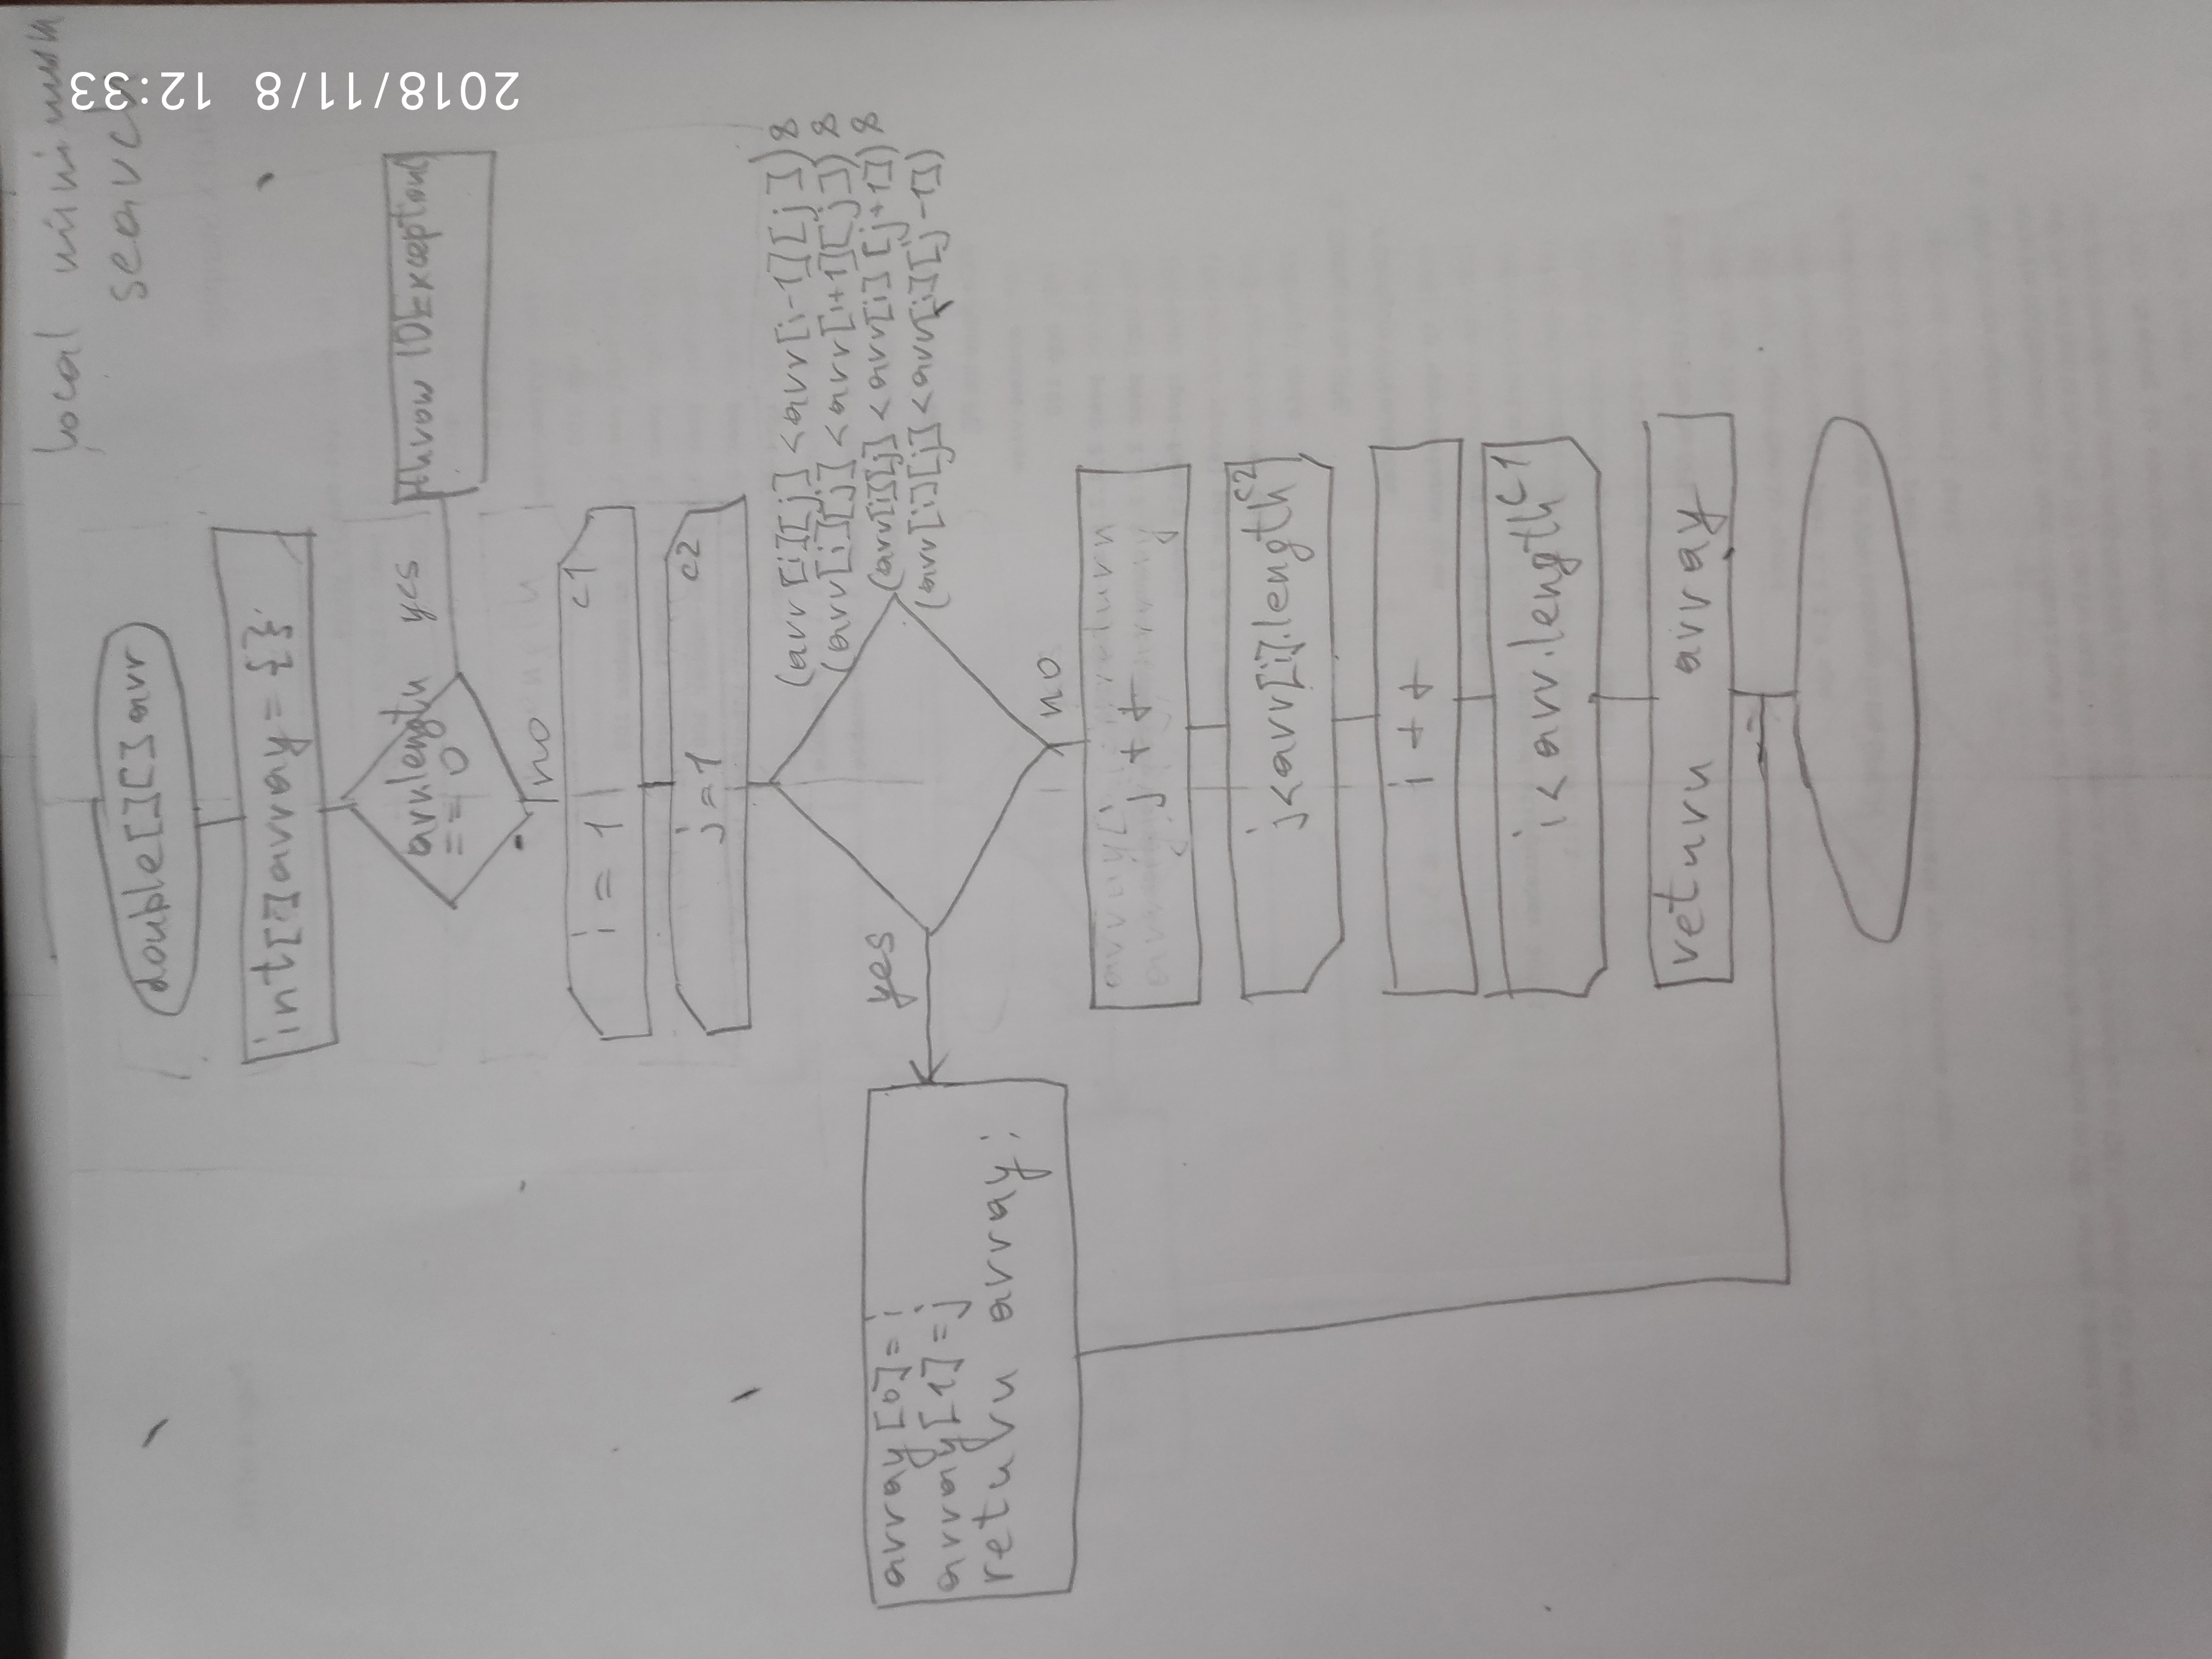 local minimum
search
double[][] arr
int[] array = {};
arr.length
== 0
yes
throw IOException
no
i = 1
c1
j = 1
c2
(arr[i][j] < arr[i-1][j]) &
(arr[i][j] < arr[i+1][j]) &
(arr[i][j] < arr[i][j+1]) &
(arr[i][j] < arr[i][j-1])
yes
array[0] = i
array[1] = j
return array;
no
j++
j < arr[i].length
c2
i++
i < arr.length
c1
return array
2018/11/8 12:33